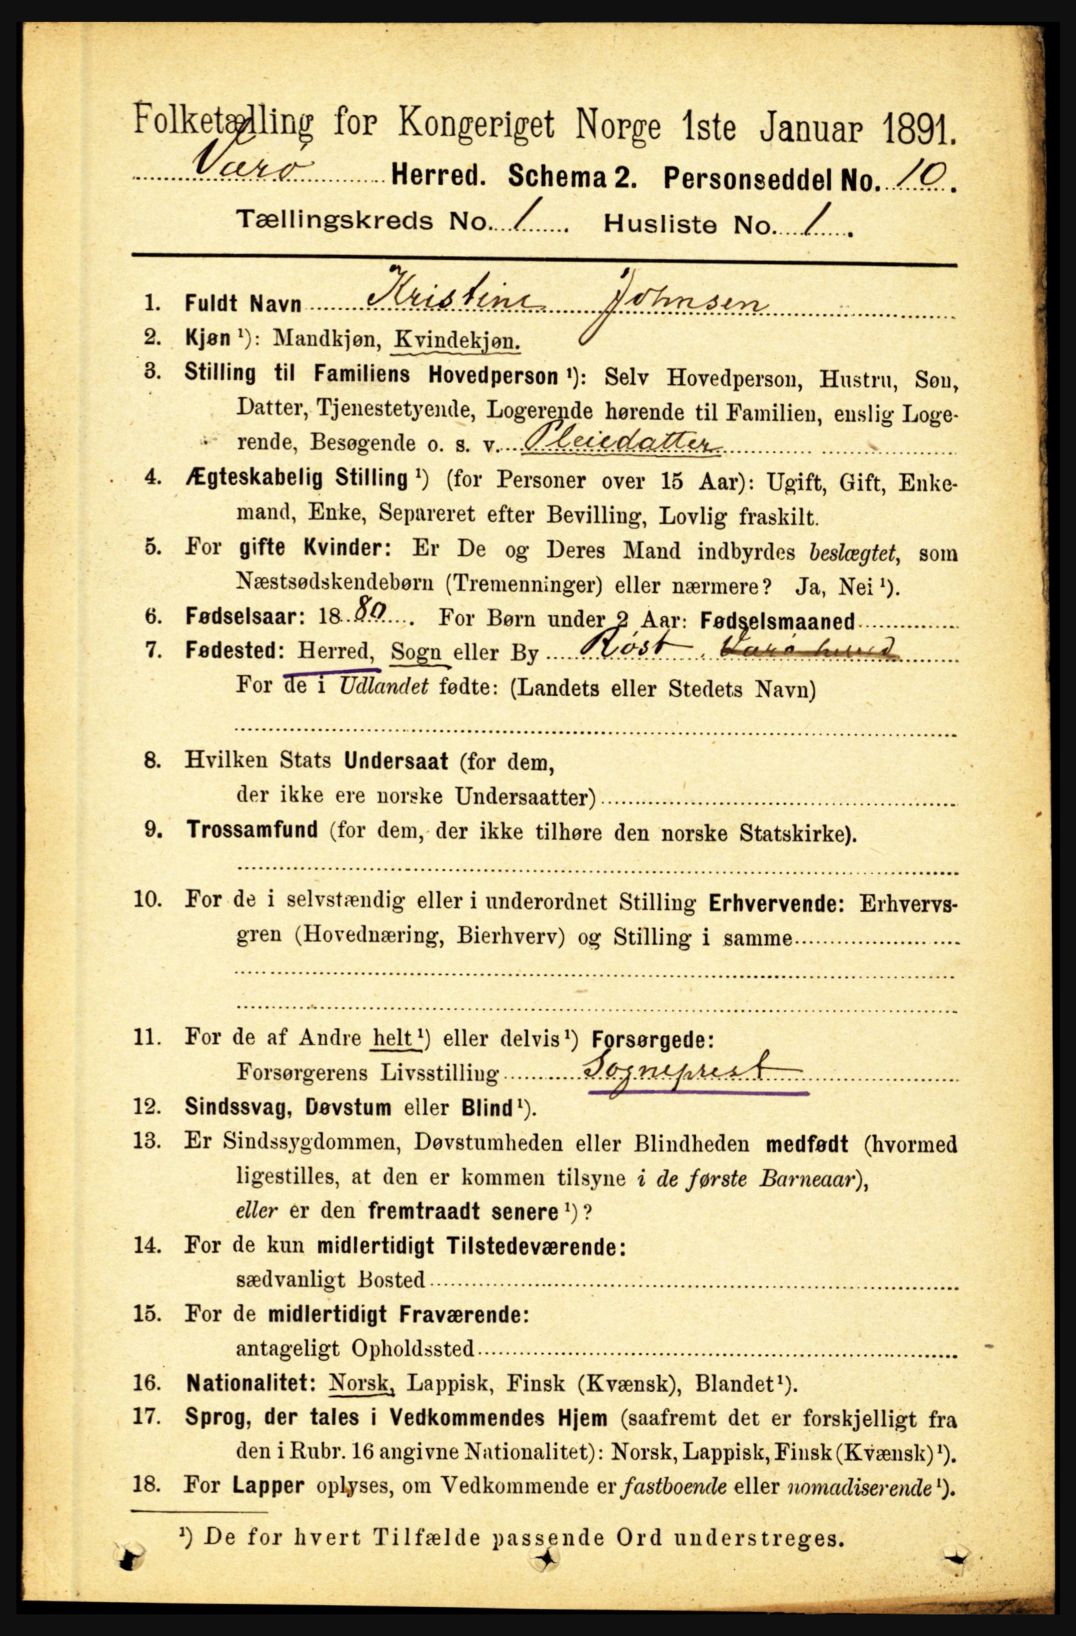 Folketælling for Kongeriget Norge 1ste Januar 1891.
Værø Herred. Schema 2. Personseddel No. 10.
Tællingskreds No. 1. Husliste No. 1.
1. Fuldt Navn Kristine Johnsen
2. Kjøn ¹): Mandkjøn, Kvindekjøn.
3. Stilling til Familiens Hovedperson ¹): Selv Hovedperson, Hustru, Søn,
Datter, Tjenestetyende, Logerende hørende til Familien, enslig Loge-
rende, Besøgende o. s. v. Pleiedatter
4. Ægteskabelig Stilling ¹) (for Personer over 15 Aar): Ugift, Gift, Enke-
mand, Enke, Separeret efter Bevilling, Lovlig fraskilt.
5. For gifte Kvinder: Er De og Deres Mand indbyrdes beslægtet, som
Næstsødskendebørn (Tremenninger) eller nærmere? Ja, Nei ¹).
6. Fødselsaar: 1880. For Børn under 2 Aar: Fødselsmaaned
7. Fødested: Herred, Sogn eller By Røst. Værø herred
For de i Udlandet fødte: (Landets eller Stedets Navn)
8. Hvilken Stats Undersaat (for dem,
der ikke ere norske Undersaatter)
9. Trossamfund (for dem, der ikke tilhøre den norske Statskirke).
10. For de i selvstændig eller i underordnet Stilling Erhvervende: Erhvervs-
gren (Hovednæring, Bierhverv) og Stilling i samme
11. For de af Andre helt ¹) eller delvis ¹) Forsørgede:
Forsørgerens Livsstilling Sogneprest
12. Sindssvag, Døvstum eller Blind ¹).
13. Er Sindssygdommen, Døvstumheden eller Blindheden medfødt (hvormed
ligestilles, at den er kommen tilsyne i de første Barneaar),
eller er den fremtraadt senere ¹)?
14. For de kun midlertidigt Tilstedeværende:
sædvanligt Bosted
15. For de midlertidigt Fraværende:
antageligt Opholdssted
16. Nationalitet: Norsk, Lappisk, Finsk (Kvænsk), Blandet ¹).
17. Sprog, der tales i Vedkommendes Hjem (saafremt det er forskjelligt fra
den i Rubr. 16 angivne Nationalitet): Norsk, Lappisk, Finsk (Kvænsk) ¹).
18. For Lapper oplyses, om Vedkommende er fastboende eller nomadiserende ¹).
¹) De for hvert Tilfælde passende Ord understreges.